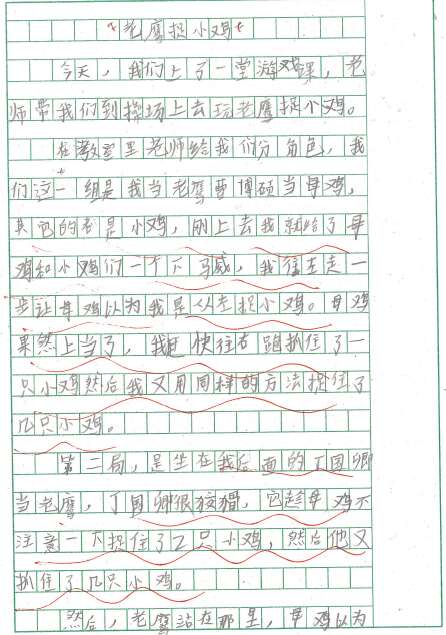 老鹰捉小鸡
今天，我们上了一堂游戏课，老
师带我们到操场上去玩老鹰捉小鸡。
在教室里老师给我们分角色，我
们这一组是我当老鹰曹博硕当母鸡，
其它的都是小鸡，刚上去我就给了母
鸡和小鸡们一个下马威，我往左走一
步让母鸡以为我是从左捉小鸡。母鸡
果然上当了，我快往右蹈抓住了一
只小鸡然后我又用同样的方法捉住了
几只小鸡。
第二局，是坐在我后面的丁国卿
当老鹰，丁国卿很狡猾，它趁母鸡不
注意一下捉住了乙只小鸡，然后他又
抓住了几只小鸡。
然后，老鹰站在那里，母鸡以为